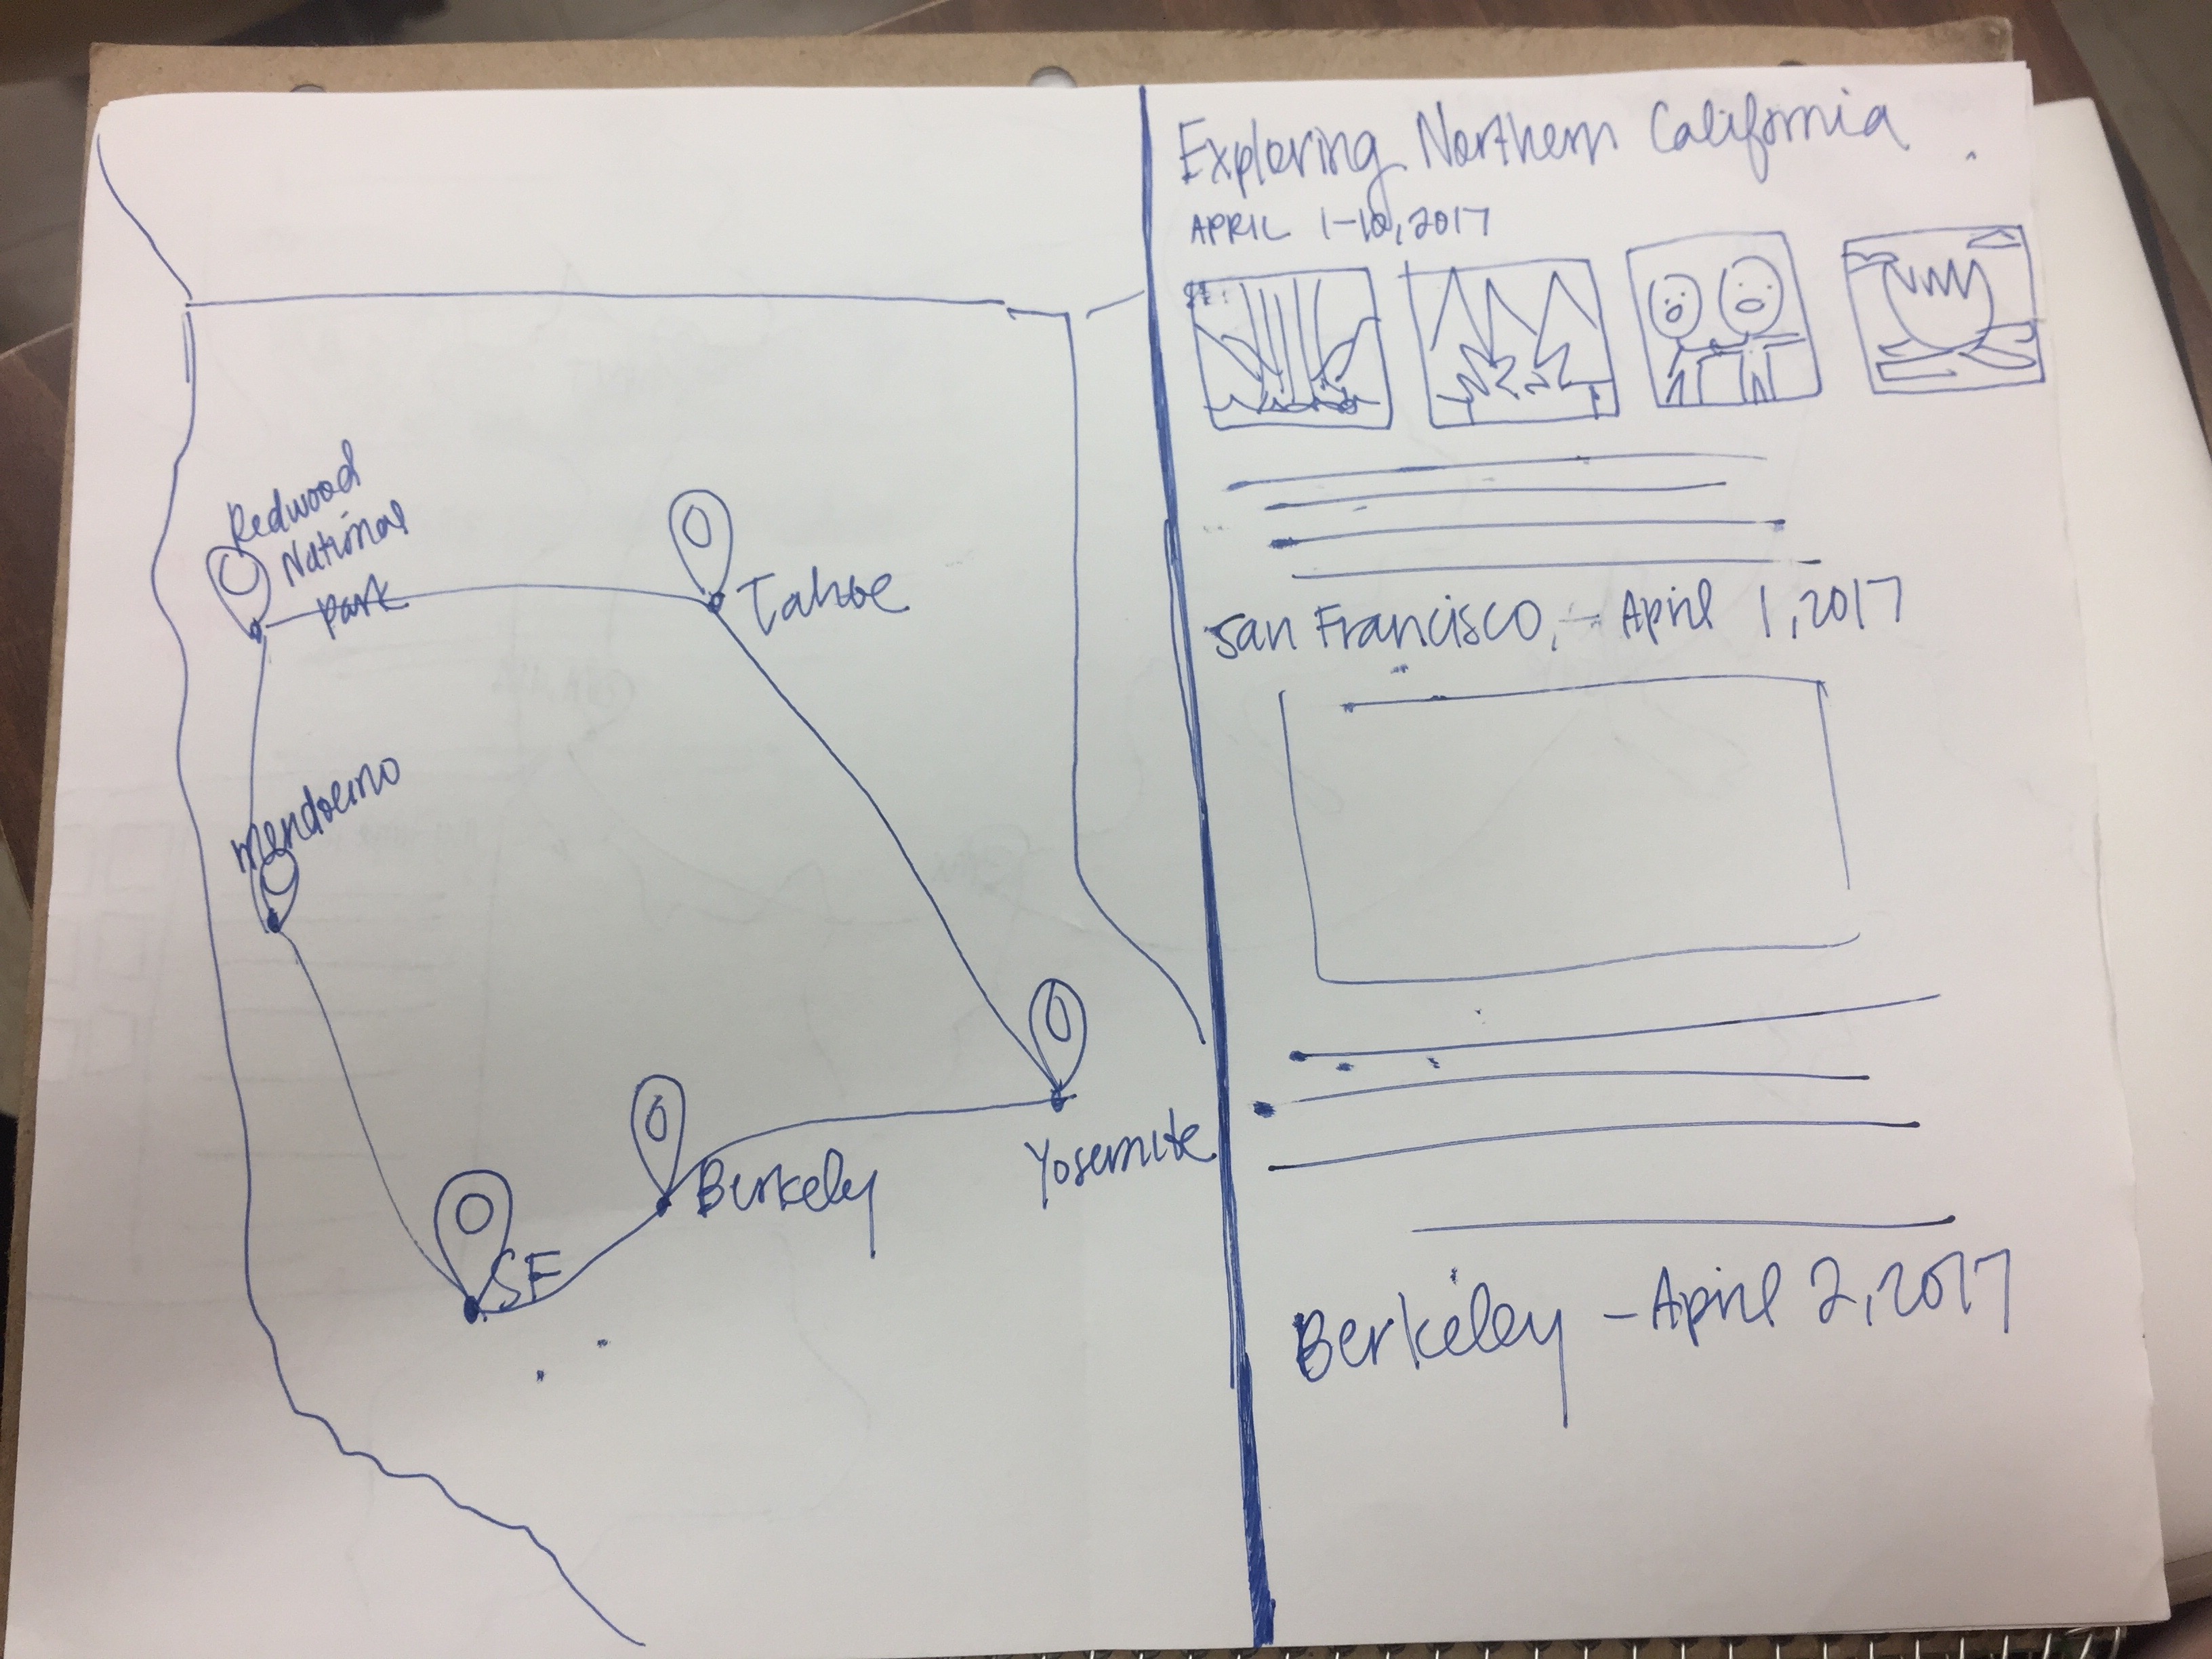 Redwood
National
park
Tahoe
Mendocino
Yosemite
Berkely
SF
Exploring Northern California
APRIL 1-10, 2017
San Francisco, - April 1, 2017
Berkeley - April 2, 2017